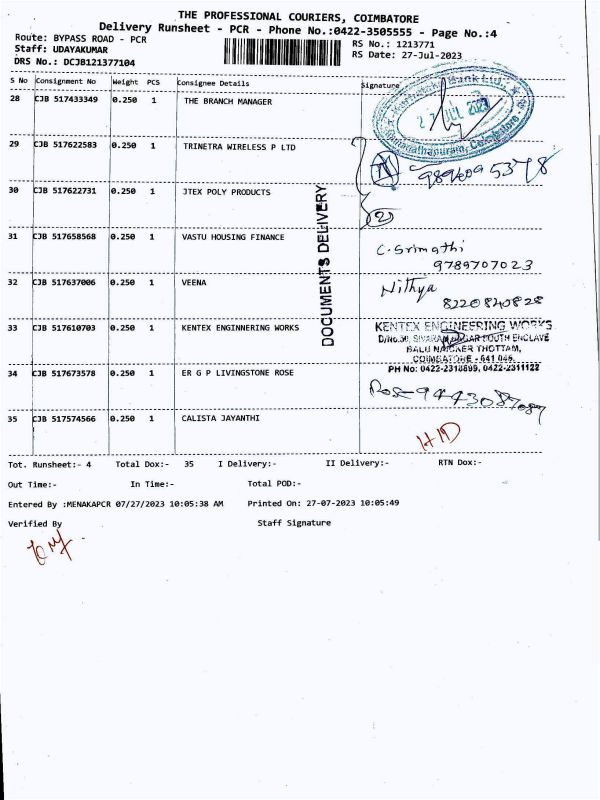 THE PROFESSIONAL COURIERS, COIMBATORE
Delivery Runsheet - PCR - Phone No.:0422-3505555 - Page No.:4
Route: BYPASS ROAD - PCR
RS No.: 1213771
Staff: UDAYAKUMAR
RS Date: 27-Jul-2023
DRS No.: DCJB121377104
S No Consignment No Weight PCS Consignee Details Signature
28 CJB 517433349 0.250 1 THE BRANCH MANAGER
27 JUL 2023
29 CJB 517622583 0.250 1 TRINETRA WIRELESS P LTD
30 CJB 517622731 0.250 1 JTEX POLY PRODUCTS
(2)
DOCUMENTS DELIVERY
31 CJB 517658568 0.250 1 VASTU HOUSING FINANCE C. Srimathi
9789707023
32 CJB 517637006 0.250 1 VEENA Nithya
8220840828
33 CJB 517610703 0.250 1 KENTEX ENGINNERING WORKS KENTEX ENGINEERING WORKS
SOUTH ENCLAVE
BALU NAICKER THOTTAM,
COIMBATORE - 641 046.
PH No: 0422-2318899, 0422-2311122
34 CJB 517673578 0.250 1 ER G P LIVINGSTONE ROSE
35 CJB 517574566 0.250 1 CALISTA JAYANTHI
Tot. Runsheet:- 4 Total Dox:- 35 I Delivery:- II Delivery:- RTN Dox:-
Out Time:- In Time:- Total POD:-
Entered By :MENAKAPCR 07/27/2023 10:05:38 AM Printed On: 27-07-2023 10:05:49
Verified By Staff Signature